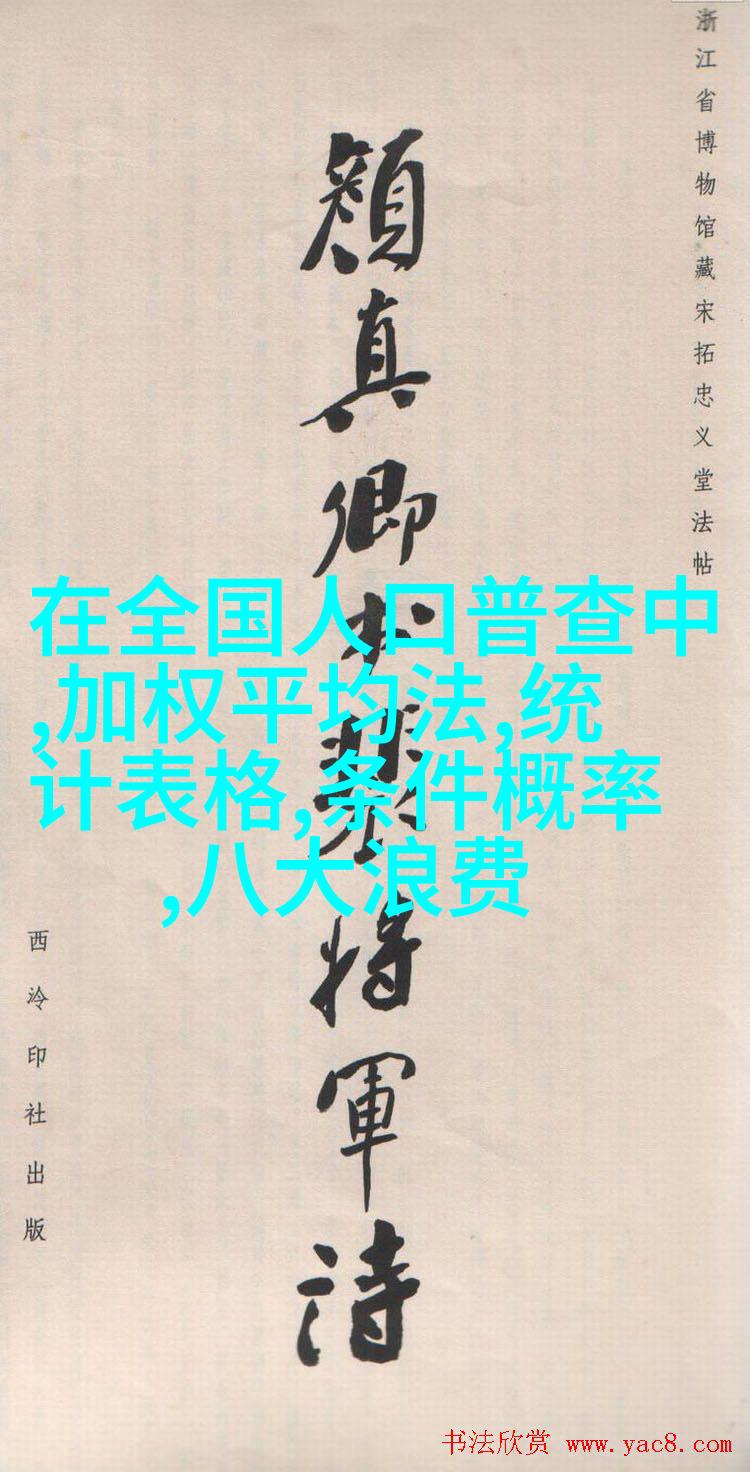 浙江省博物馆藏宋拓忠义堂法帖
颜真卿书裴将军诗
在全国人口普查中
,加权平均法,统
计表格,条件概率
,八大浪费
西泠印社出版
书法欣赏 www.yac8.com